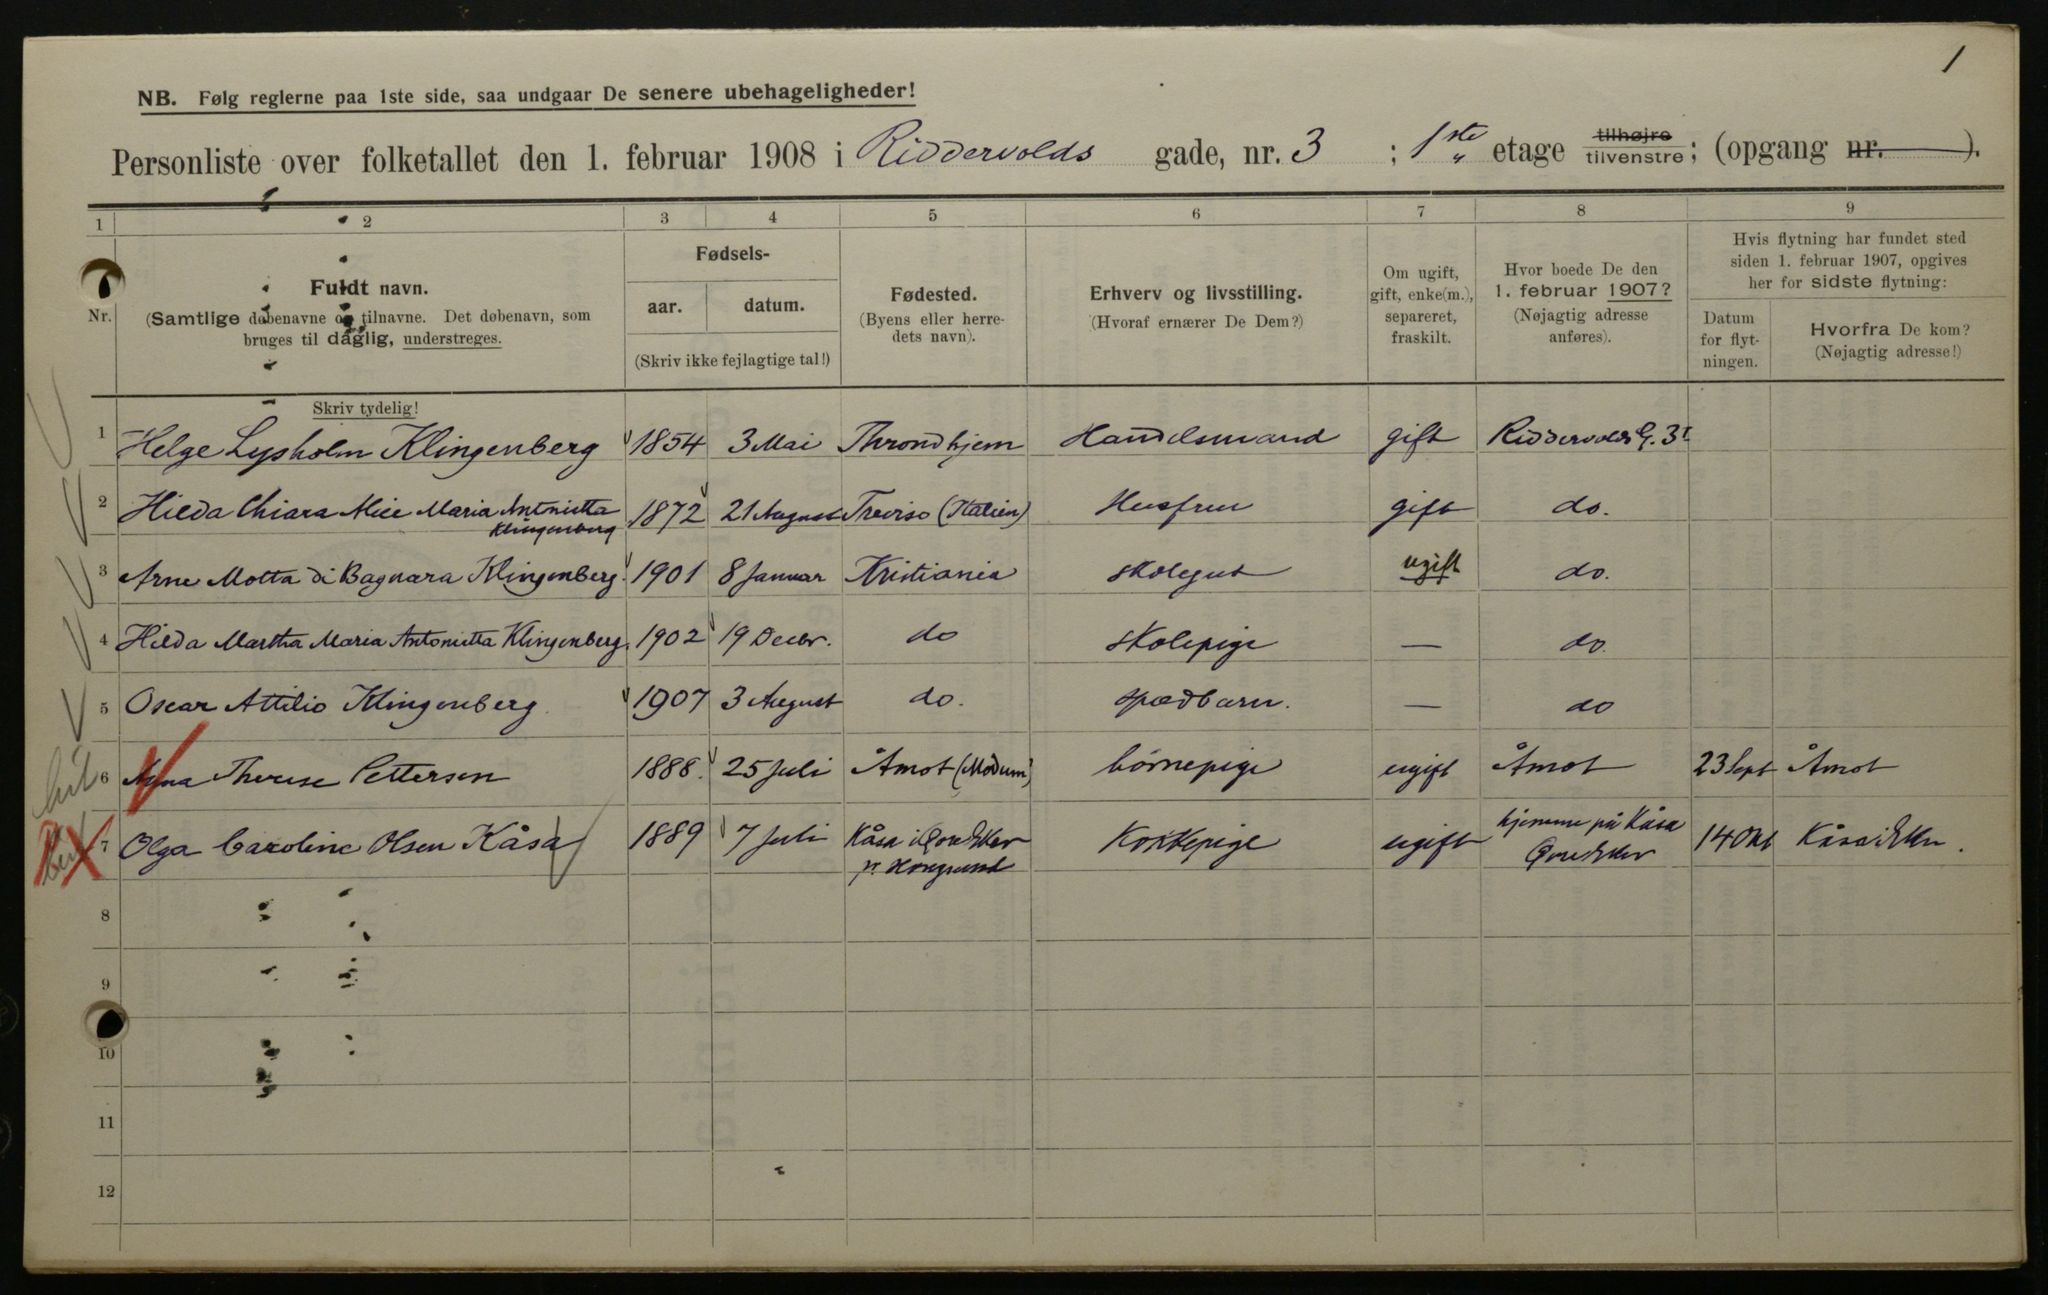 1
NB. Følg reglerne paa 1ste side, saa undgaar De senere ubehageligheder!
Personliste over folketallet den 1. februar 1908 i Riddervolds gade, nr. 3 ; 1ste etage tilhøjre tilvenstre; (opgang nr. ).
1 2 3 4 5 6 7 8 9
Nr.
Fuldt navn.
(Samtlige døbenavne og tilnavne. Det døbenavn, som
bruges til daglig, understreges.
Skriv tydelig!
Fødsels-
aar. datum.
(Skriv ikke fejlagtige tal!)
Fødested.
(Byens eller herre-
dets navn).
Erhverv og livsstilling.
(Hvoraf ernærer De Dem?)
Om ugift,
gift, enke(m.),
separeret,
fraskilt.
Hvor boede De den
1. februar 1907?
(Nøjagtig adresse
anføres).
Hvis flytning har fundet sted
siden 1. februar 1907, opgives
her for sidste flytning:
Datum
for flyt-
ningen.
Hvorfra De kom?
(Nøjagtig adresse!)
1 Helge Lysholm Klingenberg 1854 3 Mai Throndhjem Handelsmand gift Riddervolds G. 3I
2 Hilda Chiara Alice Maria Antonietta Klingenberg 1872 21 August Treviso (Italien) Husfru gift do.
3 Arne Motta di Bagnara Klingenberg. 1901 8 Januar Kristiania skolegut ugift do.
4 Hilda Martha Maria Antonietta Klingenberg. 1902 19 Decbr. do skolepige — do.
5 Oscar Attilio Klingenberg. 1907 3 August do. spædbarn. — do
6 Anna Therese Pettersen 1888. 25 Juli Åmot (Modum) börnepige ugift Åmot 23 Sept Åmot
7 Olga Caroline Olsen Kåsa 1889 7 Juli Kåsa i Övre Eker pr Hougsund Kokkepige ugift hjemme på Kåsa Övre Eker 14 Okt Kåsa i Eker.
8
9
10
11
12